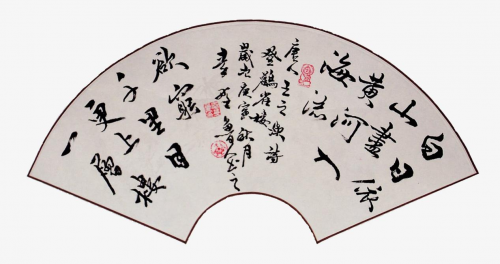 白日依
山盡
黄河入
海流
唐人王之渙詩
登鸛雀樓
庚寅秋月
欲窮目
千里
更上樓
一層